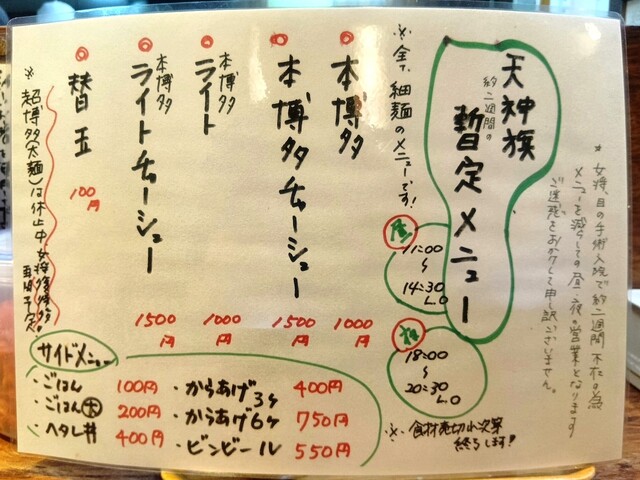 *女将、目の手術入院で約二週間不在の為
メニューを減らしての昼、夜の営業となります
ご迷惑をおかけして申し訳ございません。
天神旗
約二週間の
暫定メニュー
昼
11:00
〜
14:30
L.O
夜
18:00
〜
20:30
L.O
※食材売切れ次第
終了します!
※全て細麺のメニューです!
本博多 1000円
本博多チャーシュー 1500円
本博多ライト 1000円
本博多ライトチャーシュー 1500円
替玉 100円
※超博多(太麺)は休止中
再開予定
サイドメニュー
・ごはん 100円
・ごはん大 200円
・ヘタレ丼 400円
・からあげ3ヶ 400円
・からあげ6ヶ 750円
・ビンビール 550円